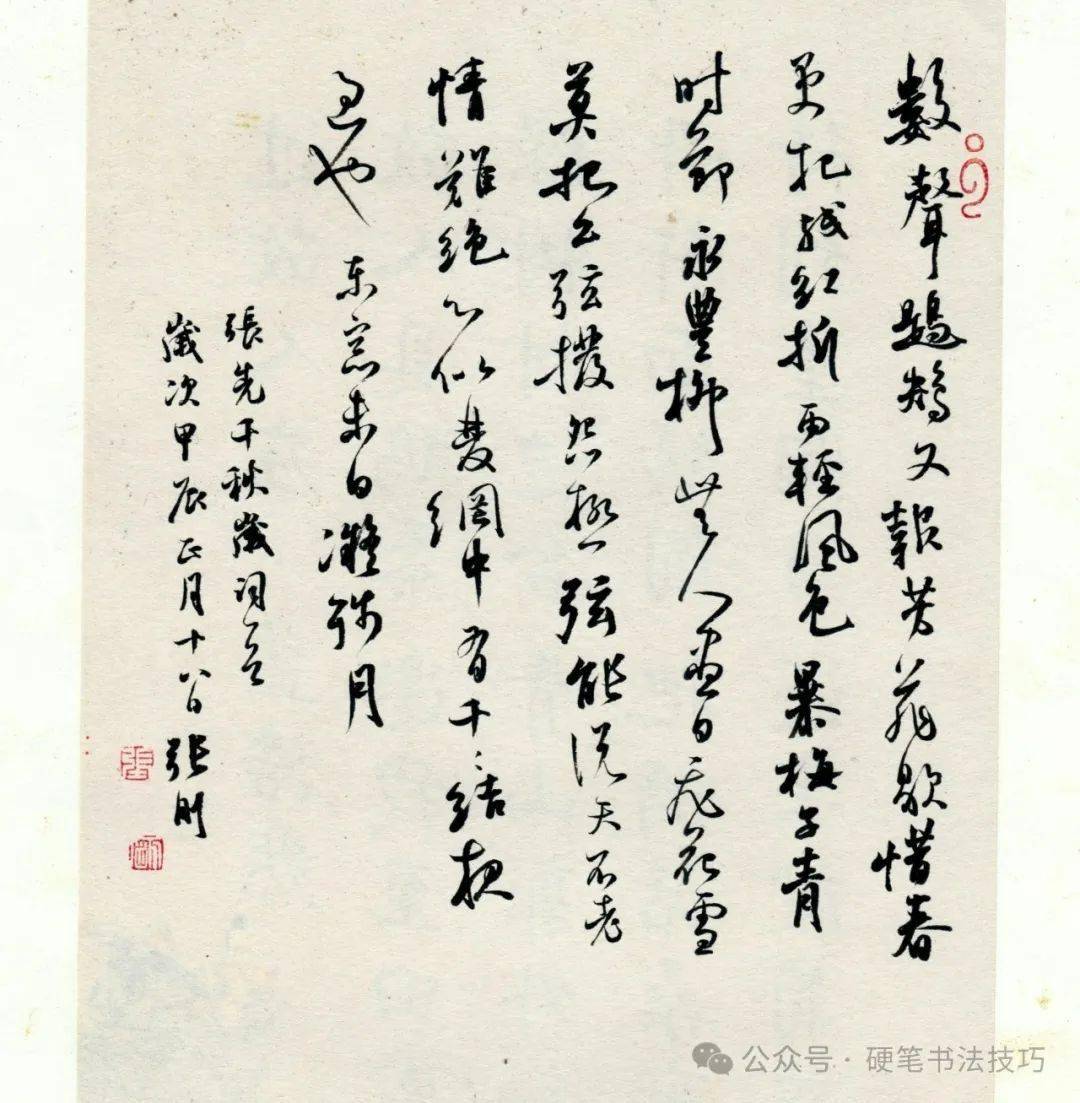 數聲鶗鴂又報芳菲歇惜春
更把残红折雨輕風色暴梅子青
时節永豐柳無人盡日飛花雪
莫把幺弦撥怨極弦能说天不老
情難绝心似雙網中有千々结夜
过也东窗未白凝残月
張先千秋歲词
歲次甲辰正月十八日張刚
公众号·硬笔书法技巧